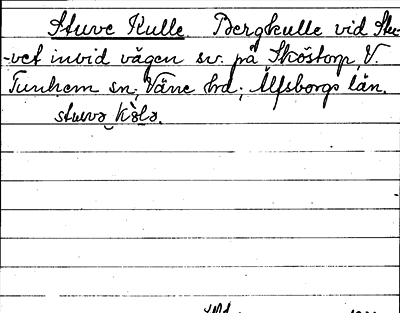 Stuve Kulle. Bergkulle vid Stu-
-vet invid vägen sv. på Sköstorp, V.
Tunhem sn, Väne hd; Älfsborgs län.